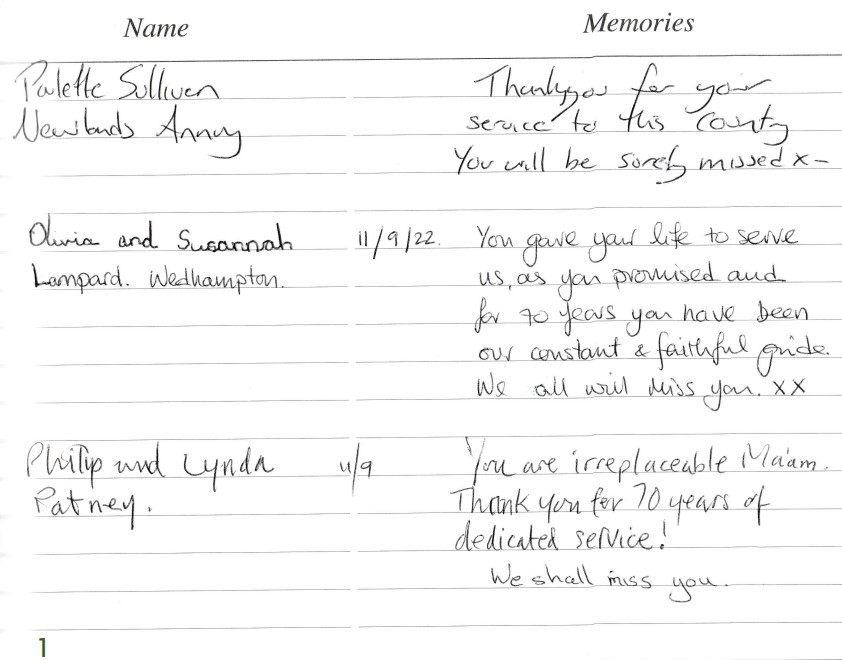 Name
Memories
Palette Sulliven
Newlands
Thankyou for your
service to this County
You will be sorely missed x
Olivia and Susannah
Lampard. Wedhampton.
11/9/22.
You gave your life to serve
us, as you promised and
for 70 years you have been
our constant & faithful guide.
We all will miss you. XX
Philip and Lynda
Patney.
11/9
You are irreplaceable Ma'am.
Thank you for 70 years of
dedicated service!
We shall miss you.
1